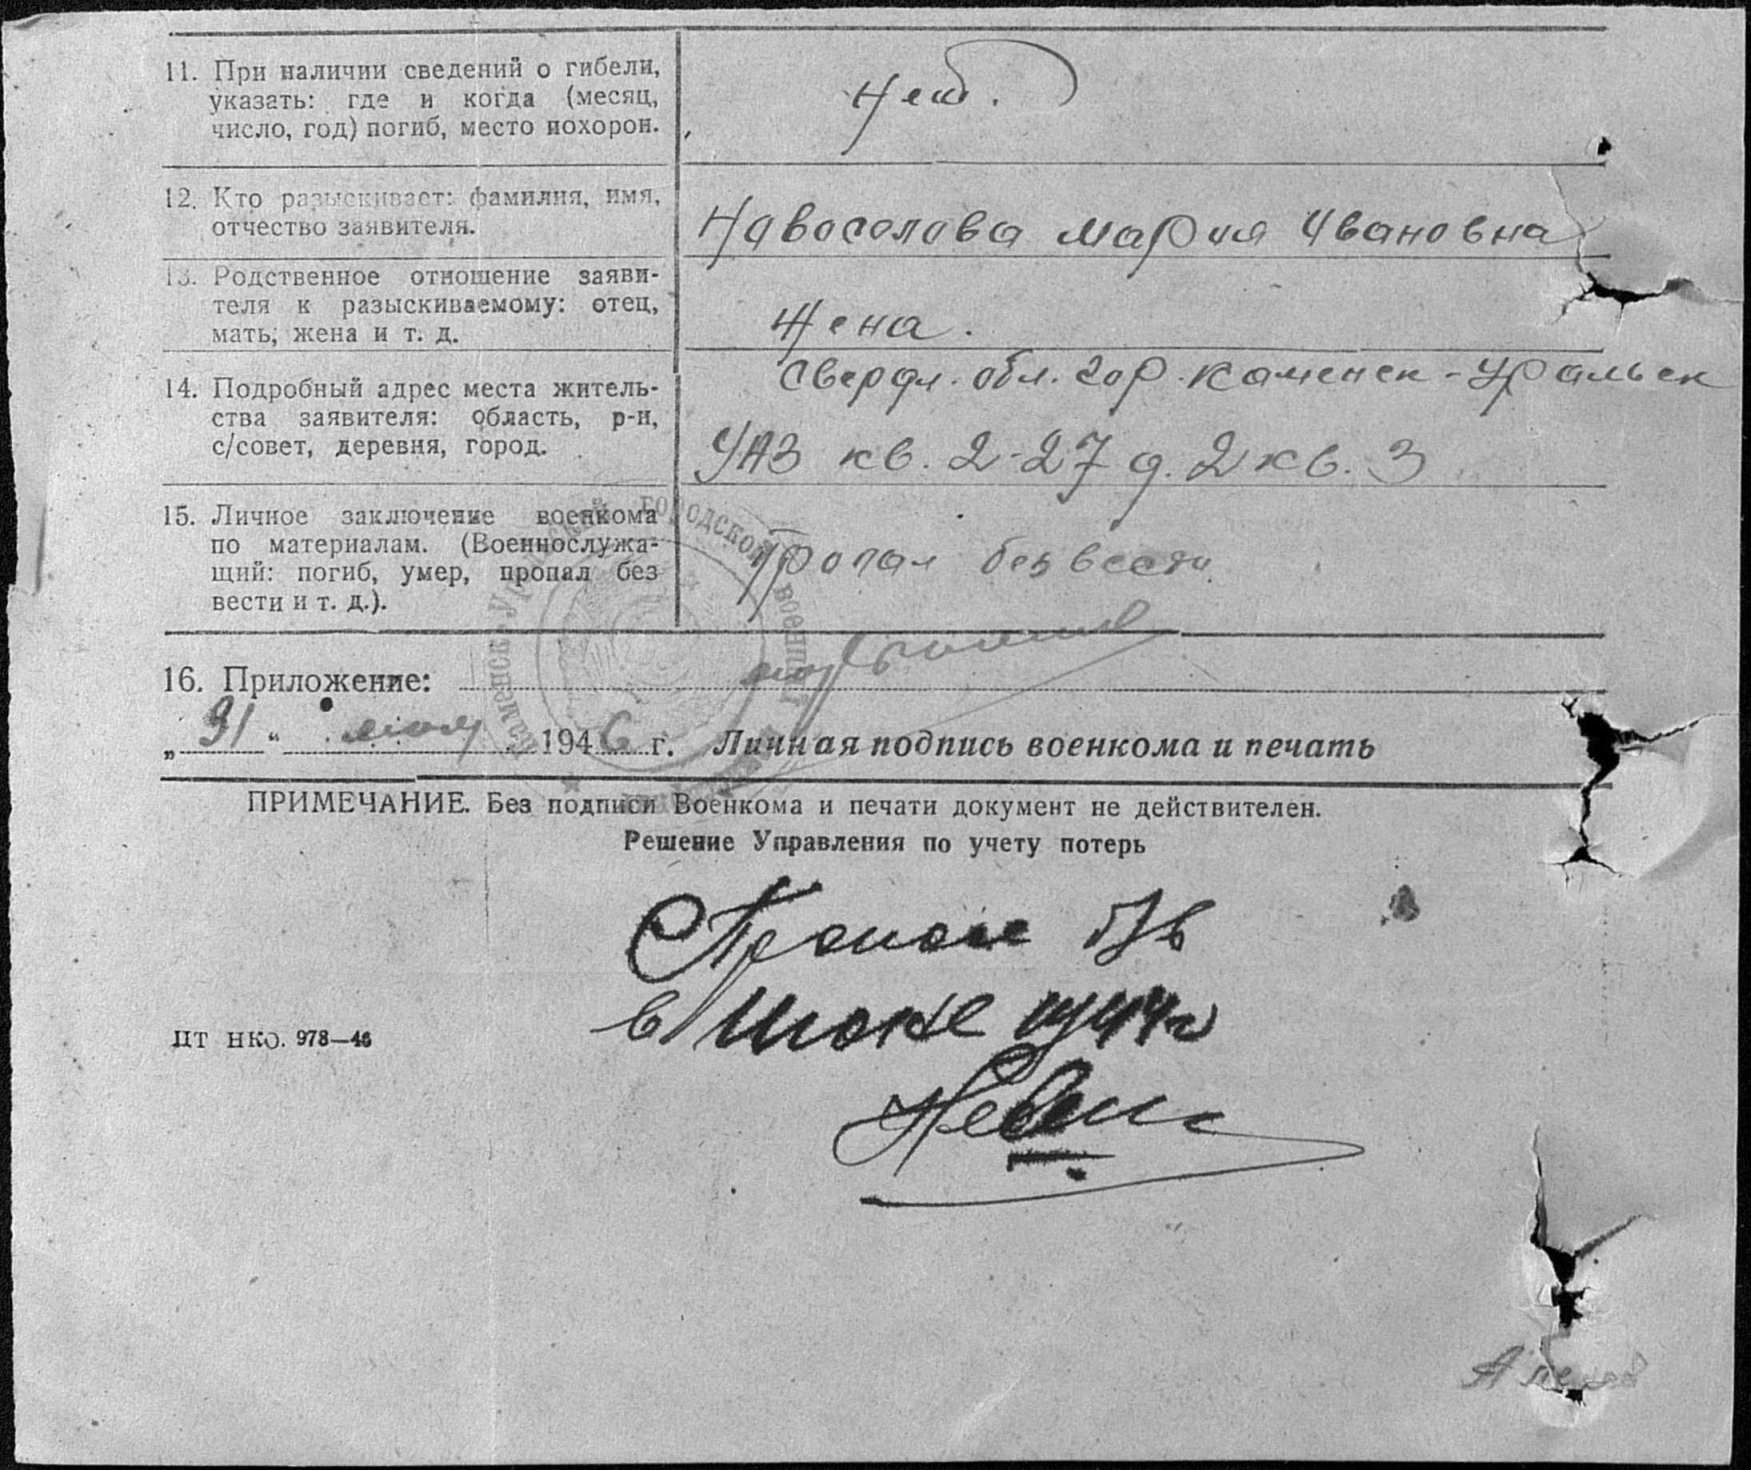 11. При наличии сведений о гибели,
указать: где и когда (месяц,
число, год) погиб, место похорон.
Нет.
12. Кто разыскивает: фамилия, имя,
отчество заявителя.
Новоселова Мария Ивановна
13. Родственное отношение заяви-
теля к разыскиваемому: отец,
мать, жена и т. д.
Жена.
14. Подробный адрес места житель-
ства заявителя: область, р-н,
с/совет, деревня, город.
Свердл. обл. гор. Каменск-Уральск
УАЗ кв. 2-27 д. 2 кв. 3
15. Личное заключение военкома
по материалам. (Военнослужа-
щий: погиб, умер, пропал без
вести и т. д.).
Пропал без вести
16. Приложение:
„31“ мая 1946 г. Личная подпись военкома и печать
ПРИМЕЧАНИЕ. Без подписи Военкома и печати документ не действителен.
Решение Управления по учету потерь
Пропал б/в
в июне 1944 г
ЦТ НКО. 978—46